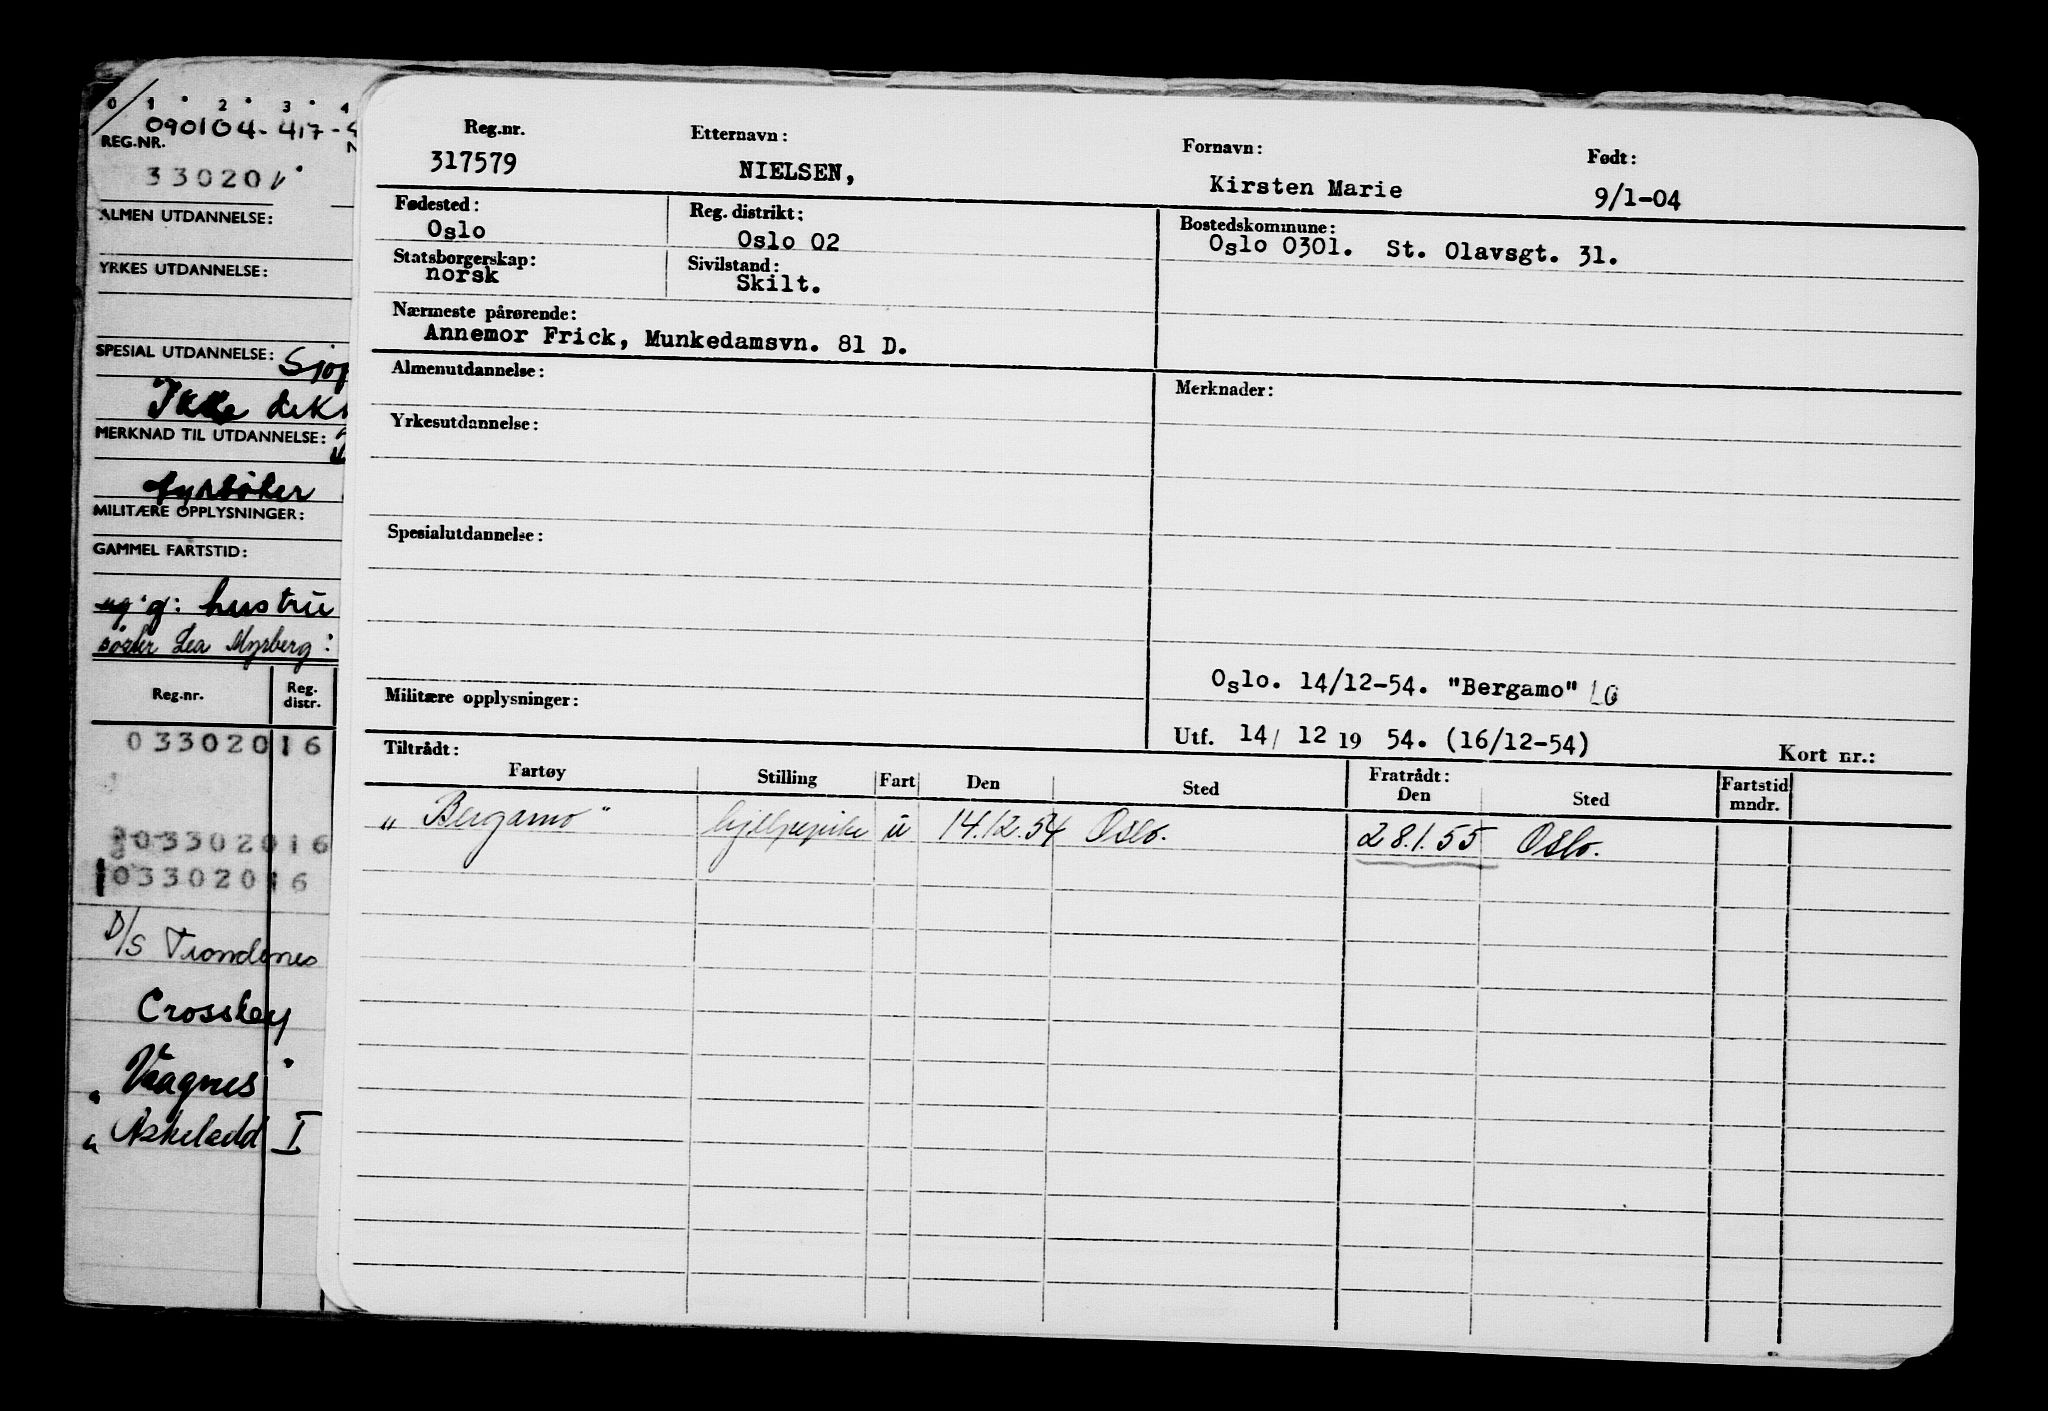 0 1 2 3 4
090104-417-
REG.NR.
33020
ALMEN UTDANNELSE:
YRKES UTDANNELSE:
SPESIAL UTDANNELSE:
Ikke
MERKNAD TIL UTDANNELSE:
fyrbøter
MILITÆRE OPPLYSNINGER:
GAMMEL FARTSTID:
g: hustru
Lea Myrberg:
Reg.nr. Reg. distr.
03302016
03302016
03302016
D/S Trondenes
Crossbey
"Vaagnes"
" Askeladd I
Reg.nr. Etternavn: Fornavn: Født:
317579 NIELSEN, Kirsten Marie 9/1-04
Fødested: Reg. distrikt: Bostedskommune:
Oslo Oslo 02 Oslo 0301. St. Olavsgt. 31.
Statsborgerskap: Sivilstand:
norsk Skilt.
Nærmeste pårørende:
Annemor Frick, Munkedamsvn. 81 D.
Almenutdannelse: Merknader:
Yrkesutdannelse:
Spesialutdannelse:
Oslo. 14/12-54. "Bergamo" LG
Militære opplysninger:
Utf. 14/ 12 19 54. (16/12-54) Kort nr.:
Tiltrådt: Fratrådt:
Fartøy Stilling Fart Den Sted Den Sted Fartstid mndr.
"Bergamo" hjelpepike u 14.12.54 Oslo. 28.1.55 Oslo.